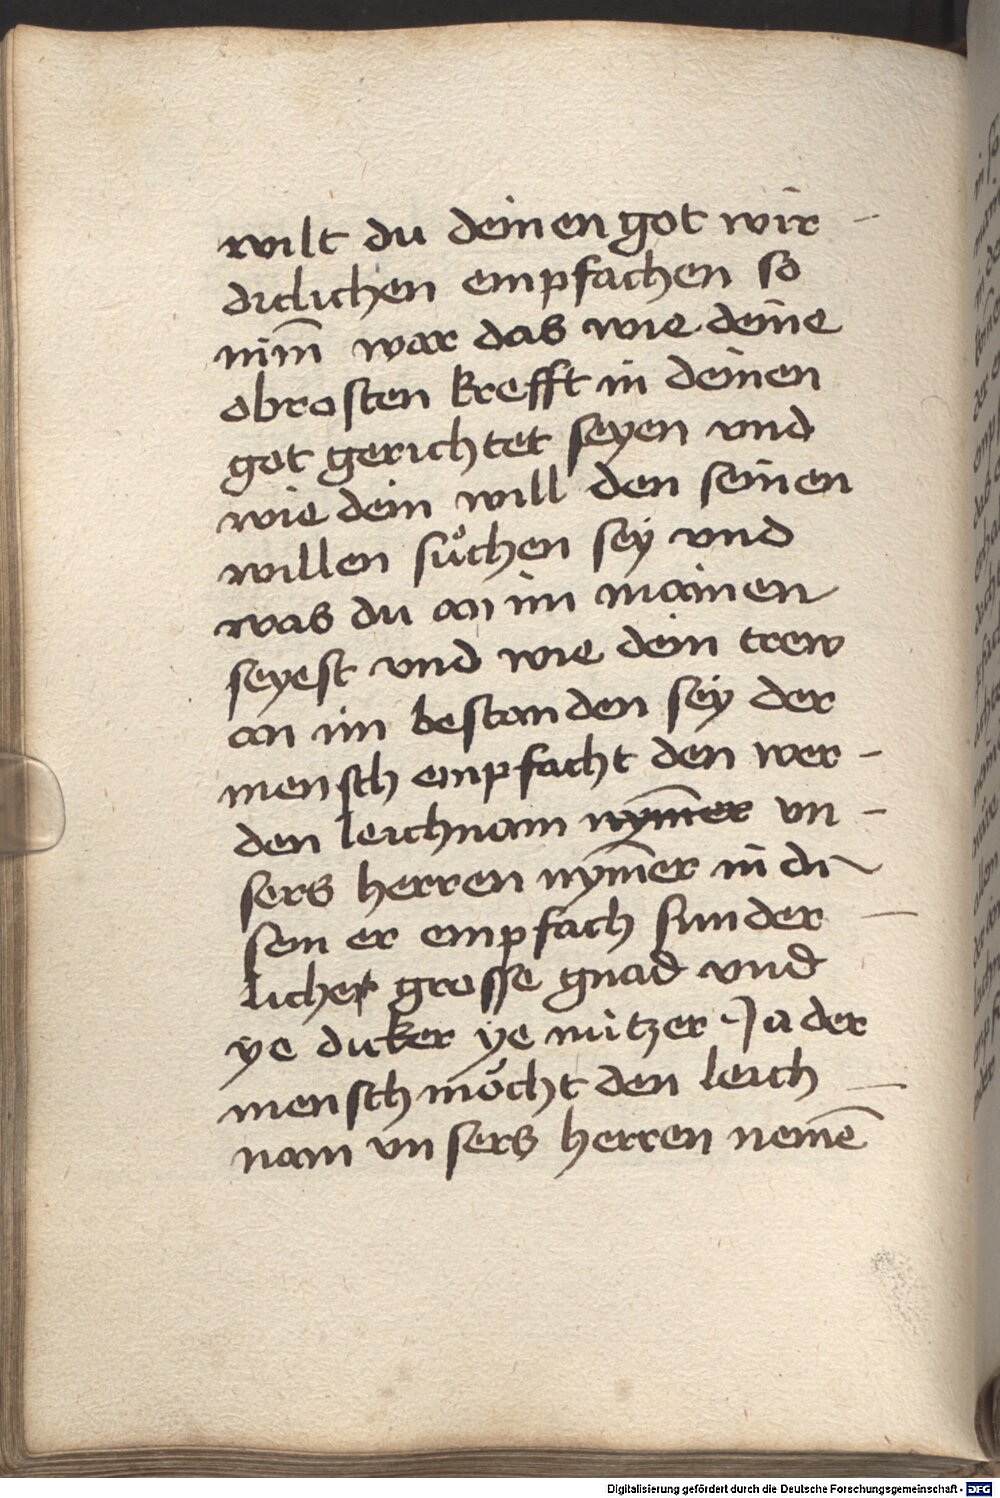 wilt du deinen got wir -
diclichen empfachen so
nim̄ war das wie deine
obrosten krefft in deinen
got gerichtet seyen vnd
wie dein will den seinen
willen suͦchen sey vnd
was du an im mainen
seyest vnd wie dein trew
an im bestanden sey der
mensch empfacht den wer -
den leichnam nym̄er vn -
sers herren nym̄er in di
sem er empfach sunder -
licher grosse gnad vnd
ye dicker ye nützer Ja der
mensch möcht den leich -
nam vnsers herren nemē
Digitalisierung gefördert durch die Deutsche Forschungsgemeinschaft - DFG